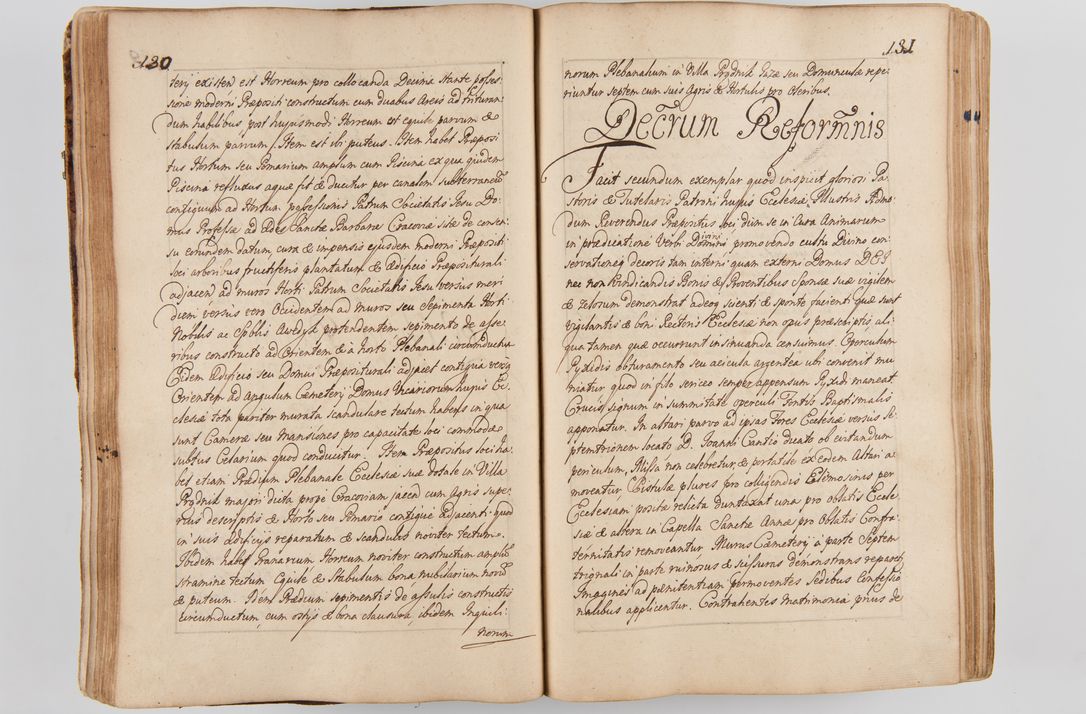 130
terij existen̄ est Horreum pro collocanda Decima stante posses-
sione moderni Præpositi constructum cum duabus Areis ad trituran-
dum habilibus post hujusmodi Horreum est equile parvum &
stabulum parvum. Item est ibi puteus. Item habet Præposi-
tus Hortum seu Pomarium amplum cum Piscina ex qua quidem
Piscina refluxus aquæ fit & ducitur per canalem subterraneū
contiguum ad Hortum possessionis Patrum Societatis Jesu Do-
mus Professæ ad Ædes Sanctæ Barbaræ Cracoviæ sitæ de consen-
su eorundem datum, cura & impensis ejusdem moderni Præpositi
loci arboribus fructiferis plantatum & Ædificio Præpositurali
adjacen̄ ad muros Horti Patrum Societatis Jesu versus meri-
diem versus vero Occidentem ad muros seu Sepimenta Horti
Nobilis ac Spblis Awedyk protendentem sepimento de asse-
ribus constructo ad Orientem & à horto Plebanali circumductum
Eidem Ædificio seu Domui Præpositurali adjacet contigua versus
Orientem ad Angulum Cæmeterij Domus Vicariorum hujus Ec-
clesiæ tota pariter murata scandulare tectum habens in qua
sunt Cameræ seu Mansiones pro capacitate loci commodæ
subtus Celarium quod conducitur. Item Præpositus loci ha-
bet etiam Prædium Plebanale Ecclesiæ suæ dotale in Villa
Prądnik majori dicta prope Cracoviam jacen̄ cum Agris supe-
rius descriptis & Horto seu Pomario contigue adjacenti quod
in suis Ædificijs reparatum & scandulis noviter tectum.
Ibidem habet Granarium Horreum noviter constructum amplū
stramine tectum Equile & Stabulum bona mubilarium novū
& puteum. Idem Prædium sepimentis de assulis constructis
circumductum, cum ostijs & bona clausura, ibidem Inquili-
norum
131
norum Plebanalium in Villa Prądnik Jazæ seu Domunculæ repe-
riuntur septem cum suis Agris & Hortulis pro Oleribus.
Decr̄um Reform̄nis
Facit secundum exemplar quod inspicit gloriosi Pa-
storis & Tutelaris Patroni hujus Ecclesiæ, Illustris Admo-
dum Reverendus Præpositus loci dum se in Cura Animarum
in prædicatione Verbi Divini promovendo cultu Divino con-
servationeq decoris tam interni quam externi Domus DEI
nec non Vindicandis Bonis & Proventibus Sponsæ suæ vigilem
& zelosum demonstrat adeoq scienti & sponte facienti quæ sunt
vigilantis & boni Rectoris Ecclesiæ non opus præscriptis ali-
qua tamen quæ occurrunt insinuanda censuimus. Operculum
Pyxidis obturamento seu acicula argentea ubi convenit mu-
niatur quod in filo sericeo semper appensum Pyxidi maneat
Crucis signum in summitate operculi Fontis Baptismalis
apponatur. In altari parvo ad ipsas Fores Ecclesiæ versus Se-
ptemtrionem locato D. Joanni Cantio dicato ob evitandum
periculum, Missa non celebretur, & portatile ex eodem Altari a-
moveatur Cistulæ plures pro colligendis Eleemosinis per
Ecclesiam positæ relicta duntaxat una pro oblatis Eccle-
siæ & altera in Capella Sanctæ Annæ pro Oblatis Confra-
ternitatis removeantur. Murus Cæmeterij à parte Septem-
trionali in parte ruinosus & scissuras demonstrans reparet.
Imagines ad pœnitentiam permoventes Sedibus Confessio-
nalibus applicentur. Contrahentes Matrimonia prius de